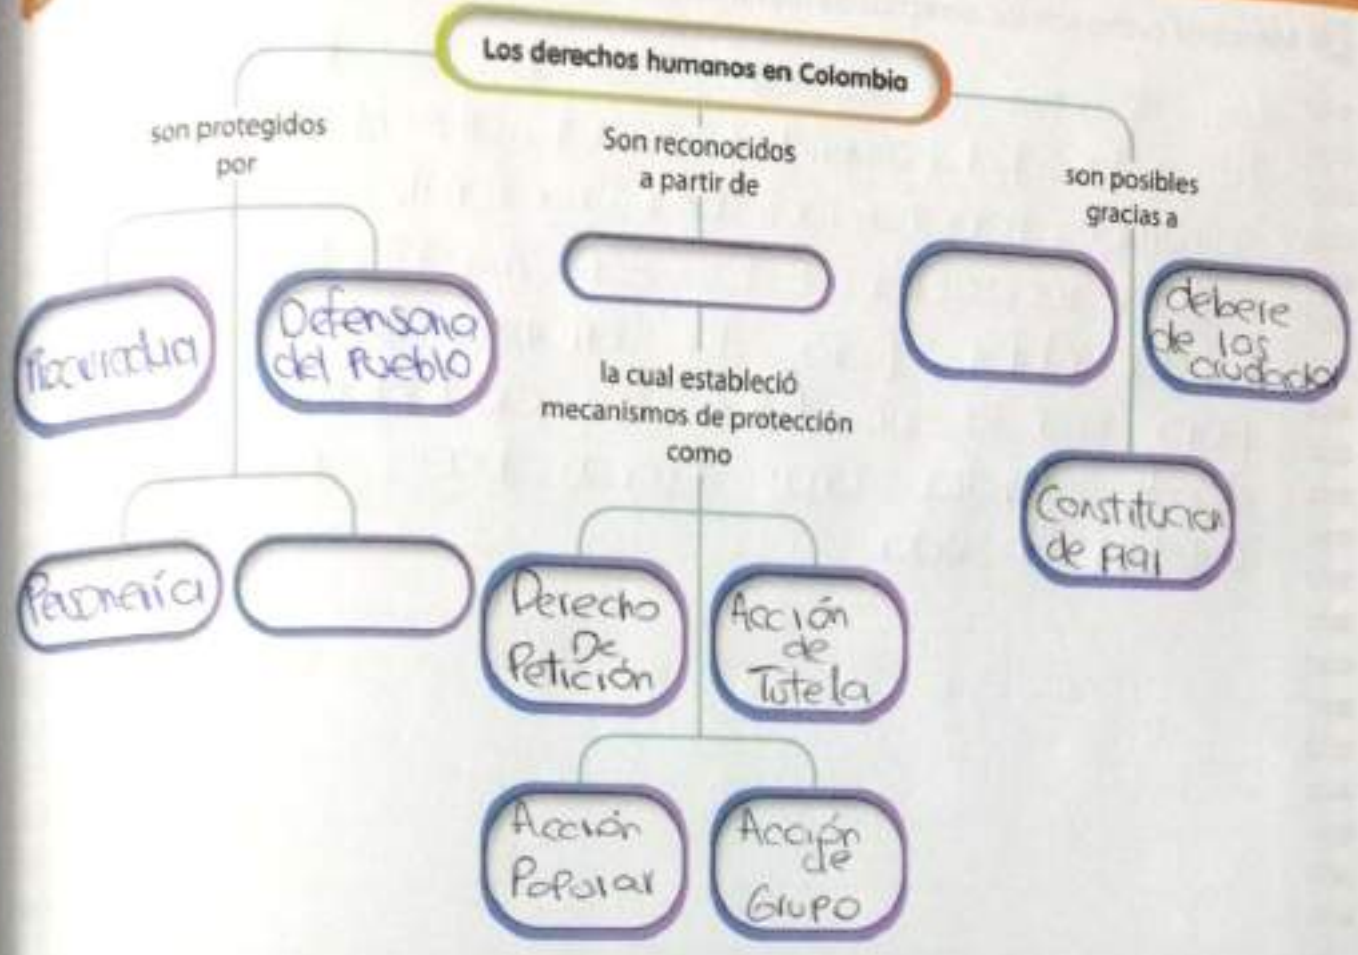 Los derechos humanos en Colombia
son protegidos
por
Defensoria
del Pueblo
Personería
Son reconocidos
a partir de
la cual estableció
mecanismos de protección
como
Derecho
De
Petición
Acción
de
Tutela
Acción
Popular
Acción
de
Grupo
son posibles
gracias a
debere
de los
ciudada
Constitucion
de 1991